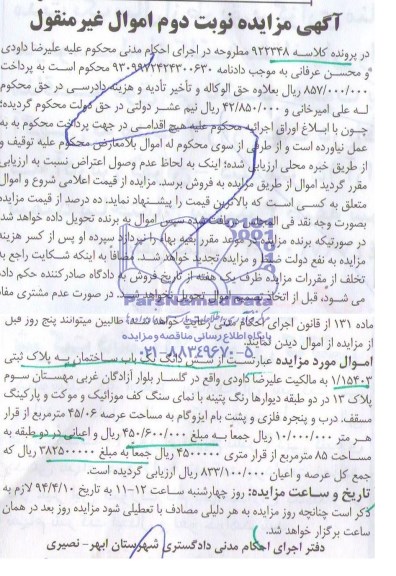 آگهی مزایده نوبت دوم اموال غیرمنقول
در پرونده کلاسه ۹۲۲۳۴۸ مطروحه در اجرای احکام مدنی محکوم علیه علیرضا داودی
و محسن عرفانی به موجب دادنامه ۹۳۰۹۹۷۲۴۲۴۳۰۰۶۳۰ محکوم است به پرداخت
۸۵۷/۰۰۰/۰۰۰ ریال بعلاوه حق الوکاله و تأخیر تأدیه و هزینه دادرسی در حق محکوم
له علی امیرخانی و ۴۲/۸۵۰/۰۰۰ ریال نیم عشر دولتی در حق دولت محکوم گردیده؛
چون با ابلاغ اوراق اجرائیه محکوم علیه هیچ اقدامی در جهت پرداخت محکوم به به
عمل نیاورده است و از طرفی از سوی محکوم له اموال بلامعارض محکوم علیه توقیف و
از طریق خبره محلی ارزیابی شده؛ اینک به لحاظ عدم وصول اعتراض نسبت به ارزیابی
مقرر گردید اموال از طریق مزایده به فروش برسد. مزایده از قیمت اعلامی شروع و اموال
متعلق به کسی است که بالاترین قیمت را پیشنهاد نماید، ده درصد از قیمت مزایده
بصورت وجه نقد فی المجلس دریافت شده سپس اموال به برنده تحویل داده خواهد شد.
در صورتیکه برنده مزایده در موعد مقرر بقیه بهاء را نپردازد سپرده او پس از کسر هزینه
مزایده به نفع دولت ضبط و مزایده تجدید خواهد شد. مضافا به اینکه شکایت راجع به
تخلف از مقررات مزایده ظرف یک هفته از تاریخ فروش به دادگاه صادرکننده حکم داده
می شود، قبل از اتخاذ اموال تحویل نخواهد شد. در صورت عدم مشتری مفاد
ماده ۱۳۱ از قانون اجرای احکام مدنی رعایت خواهد شد. طالبین میتوانند پنج روز قبل
از مزایده از اموال دیدن نمایند.
ParsNamadData
پایگاه اطلاع رسانی مناقصه و مزایده
۰۲۱-۸۸۳۴۹۶۷۰-۵
اموال مورد مزایده عبارتست از شش دانگ یک باب ساختمان به پلاک ثبتی
۱/۱۵۴۰۳ به مالکیت علیرضا داودی واقع در گلسار بلوار آزادگان غربی مهستان سوم
پلاک ۱۳ در دو طبقه دیوارها رنگ پتینه با نمای سنگ کف موزائیک و موکت و پارکینگ
مسقف. درب و پنجره فلزی و پشت بام ایزوگام به مساحت عرصه ۴۵/۰۶ مترمربع از قرار
هر متر ۱۰/۰۰۰/۰۰۰ ریال جمعاً به مبلغ ۴۵۰/۶۰۰/۰۰۰ ریال و اعیانی در دو طبقه به
مساحت ۸۵ مترمربع از قرار متری ۴۵۰۰۰۰۰ ریال جمعاً به مبلغ ۳۸۲۵۰۰۰۰۰ ریال که
جمع کل عرصه و اعیان ۸۳۳/۱۰۰/۰۰۰ ریال ارزیابی گردیده است.
تاریخ و ساعت مزایده: روز چهارشنبه ساعت ۱۲-۱۱ به تاریخ ۹۴/۴/۱۰ لازم به
ذکر است چنانچه روز مزایده به هر دلیلی مصادف با تعطیلی شود مزایده روز بعد در همان
ساعت برگزار خواهد شد.
دفتر اجرای احکام مدنی دادگستری شهرستان ابهر- نصیری